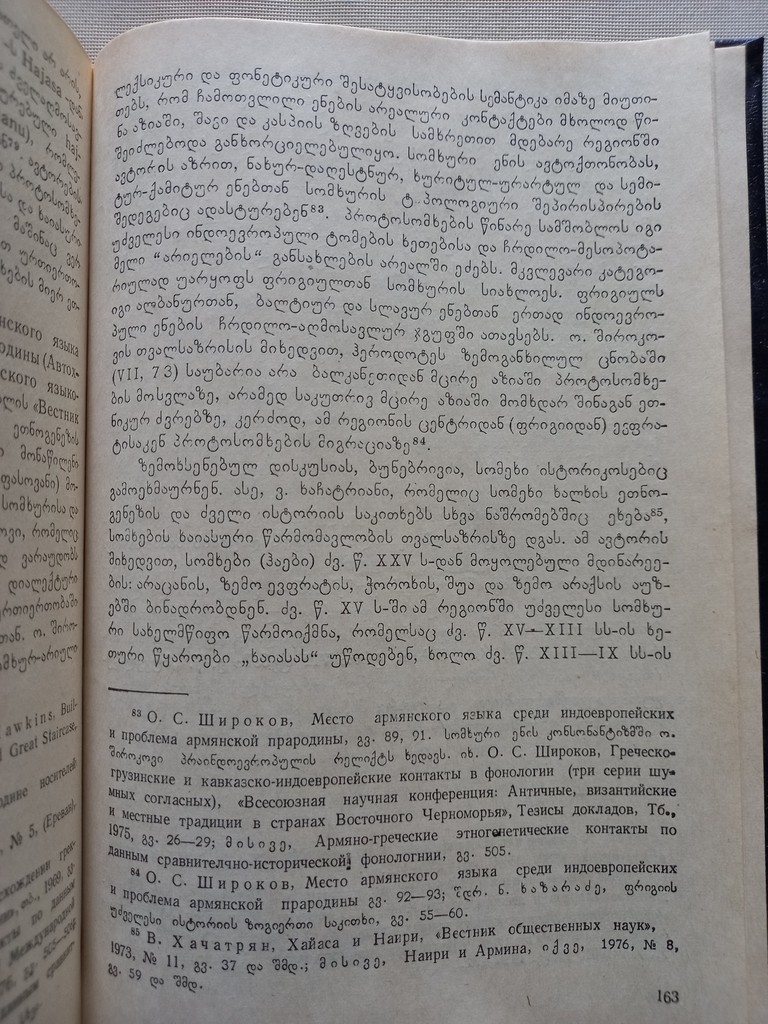 ლექსიკური და ფონეტიკური შესატყვისობების სემანტიკა იმაზე მიუთი-
თებს, რომ ჩამოთვლილი ენების არეალური კონტაქტები მხოლოდ წი-
ნა აზიაში, შავი და კასპიის ზღვების სამხრეთით მდებარე რეგიონში
შეიძლებოდა განხორციელებულიყო. სომხური ენის ავტოქთონობას,
ავტორის აზრით, ნახურ-დაღესტნურ, ხურიტულ-ურარტულ და სემი-
ტურ-ქამიტურ ენებთან სომხურის ტ პოლოგიური შეპირისპირების
შედეგებიც ადასტურებენ⁸³. პროტოსომხების წინარე სამშობლოს იგი
უძველესი ინდოევროპული ტომების ხეთებისა და ჩრდილო-მესოპოტა-
მელი “არიელების“ განსახლების არეალში ეძებს. მკვლევარი კატეგო-
რიულად უარყოფს ფრიგიულთან სომხურის სიახლოეს. ფრიგიულს
იგი ალბანურთან, ბალტიურ და სლავურ ენებთან ერთად ინდოევრო-
პული ენების ჩრდილო-აღმოსავლურ ჯგუფში ათავსებს. ო. შიროკო-
ვის თვალსაზრისის მიხედვით, ჰეროდოტეს ზემოგანხილულ ცნობაში
(VII, 73) საუბარია არა ბალკანეთიდან მცირე აზიაში პროტოსომხე-
ბის მოსვლაზე, არამედ საკუთრივ მცირე აზიაში მომხდარ შინაგან ეთ-
ნიკურ ძვრებზე, კერძოდ, ამ რეგიონის ცენტრიდან (ფრიგიიდან) ევფრა-
ტისაკენ პროტოსომხების მიგრაციაზე⁸⁴.
ზემოხსენებულ დისკუსიას, ბუნებრივია, სომეხი ისტორიკოსებიც
გამოეხმაურნენ. ასე, ვ. ხაჩატრიანი, რომელიც სომეხი ხალხის ეთნო-
გენეზის და ძველი ისტორიის საკითხებს სხვა ნაშრომებშიც ეხება⁸⁵,
სომხების ხაიასური წარმომავლობის თვალსაზრისზე დგას. ამ ავტორის
მიხედვით, სომხები (ჰაები) ძვ. წ. XXV ს-დან მოყოლებული მდინარეე-
ბის: არაცანის, ზემო ევფრატის, ჭოროხის, შუა და ზემო არაქსის აუზ-
ებში ბინადრობდნენ. ძვ. წ. XV ს-ში ამ რეგიონში უძველესი სომხუ-
რი სახელმწიფო წარმოიქმნა, რომელსაც ძვ. წ. XV—XIII სს-ის ხე-
თური წყაროები „ხაიასას“ უწოდებენ, ხოლო ძვ. წ. XIII—IX სს-ის
⁸³ О. С. Широков, Место армянского языка среди индоевропейских
и проблема армянской прародины, გვ. 89, 91. სომხური ენის კონსონანტიზმში ო.
შიროკოვი პრაინდოევროპულის რელიქტს ხედავს. იხ. О. С. Широков, Греческо-
грузинские и кавказско-индоевропейские контакты в фонологии (три серии шу-
мных согласных), «Всесоюзная научная конференция: Античные, византийские
и местные традиции в странах Восточного Черноморья», Тезисы докладов, Тб.,
1975, გვ. 26—29; მისივე, Армяно-греческие этногенетические контакты по
данным сравнителчно-исторической фонологнии, გვ. 505.
⁸⁴ О. С. Широков, Место армянского языка среди индоевропейских
и проблема армянской прародины გვ. 92—93; შდრ. ნ. ხაზარაძე, ფრიგიის
უძველესი ისტორიის ზოგიერთი საკითხი, გვ. 55—60.
⁸⁵ В. Хачатрян, Хайаса и Наири, «Вестник общественных наук»,
1973, № 11, გვ. 37 და შმდ.; მისივე, Наири и Армина, იქვე, 1976, № 8,
გვ. 59 და შმდ.
163